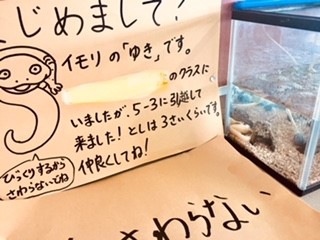 はじめまして！
イモリの「ゆき」です。
のクラスに
いましたが、5-3に引越して
来ました！としは3さいくらいです。
仲良くしてね！
びっくりするから
さわらないでね
さわらない